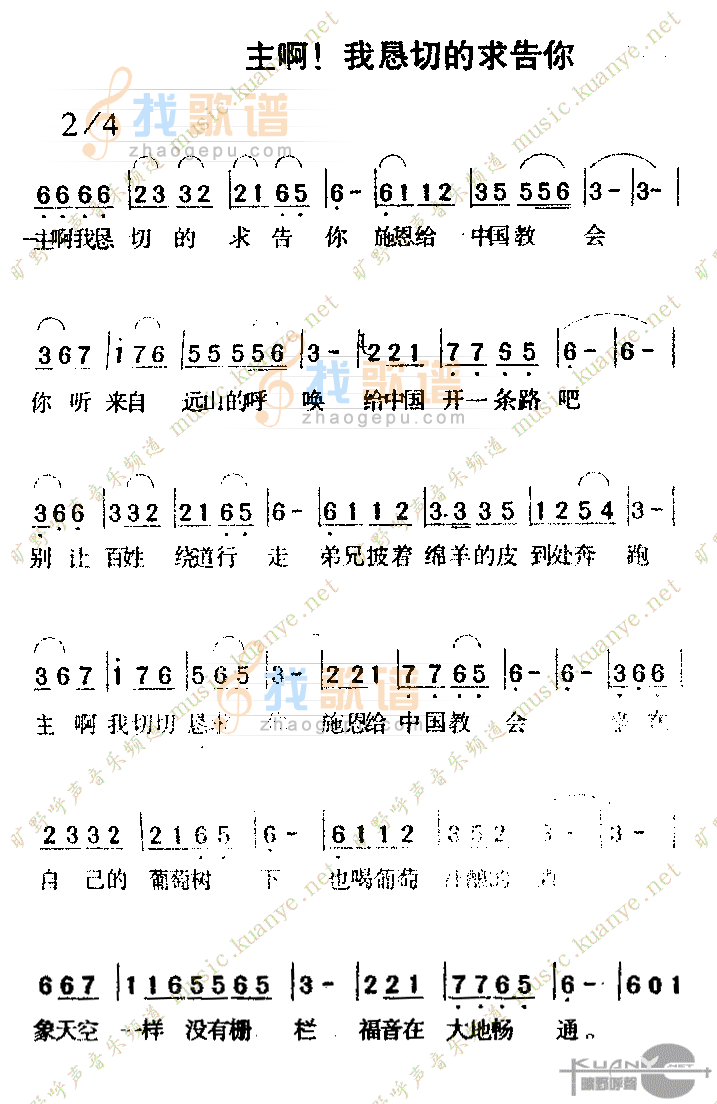 主啊！我恳切的求告你
2/4
找歌谱
zhaogepu.com
6666 | 2332 | 2165 | 6- | 6112 | 35 556 | 3- | 3- |
主啊我恳 切 的 求 告 你 施恩给 中国教 会
367 | i76 | 55556 | 3- | 221 | 7765 | 6- | 6- |
你 听 来自 远山的呼 唤 给中国 开一条路 吧
找歌谱
zhaogepu.com
366 | 332 | 2165 | 6- | 6112 | 3·335 | 1254 | 3- |
别 让 百姓 绕道行 走 弟兄披着 绵羊的皮 到处奔 跑
367 | i76 | 565 | 3- | 221 | 7765 | 6- | 6- | 366 |
主 啊 我切切 恳求 施恩给 中国教 会
找歌谱
zhaogepu.com
2332 | 2165 | 6- | 6112 | 352 | 3- | 3- |
自 己的 葡萄树 下 也喝葡萄
667 | 1165565 | 3- | 221 | 7765 | 6- | 601
象天空 一样 没有栅 栏 福音在 大地畅 通。
KUANYE.NET
旷野呼声
旷野呼声音乐频道 music.kuanye.net